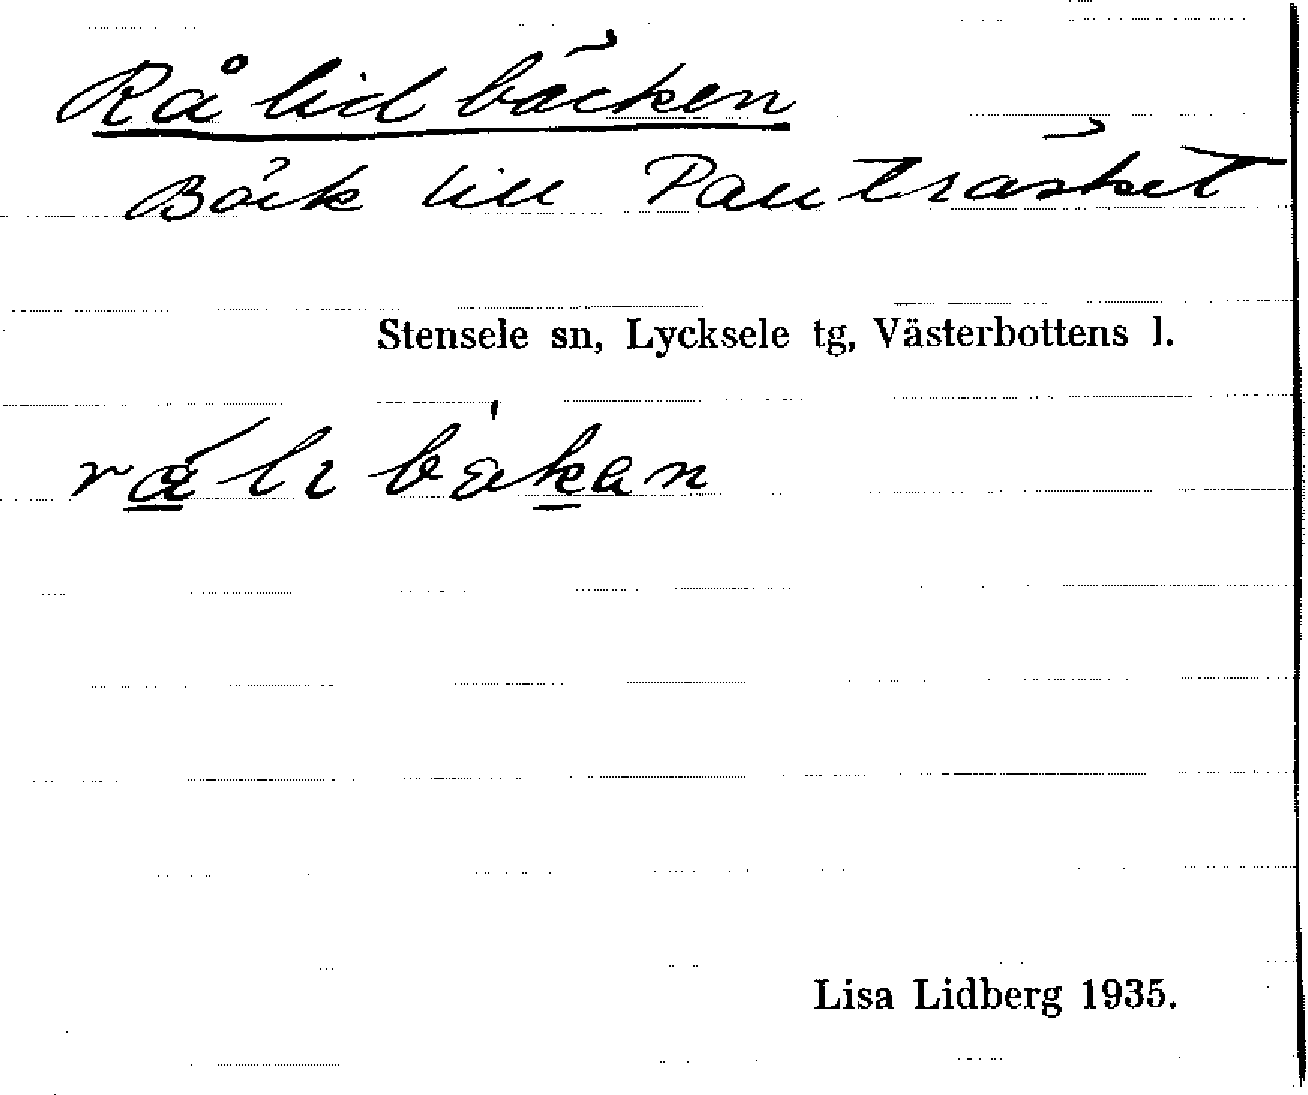 Rålidbäcken
Bäck till Pauträsket
Stensele sn, Lycksele tg, Västerbottens l.
rålibäkan
Lisa Lidberg 1935.